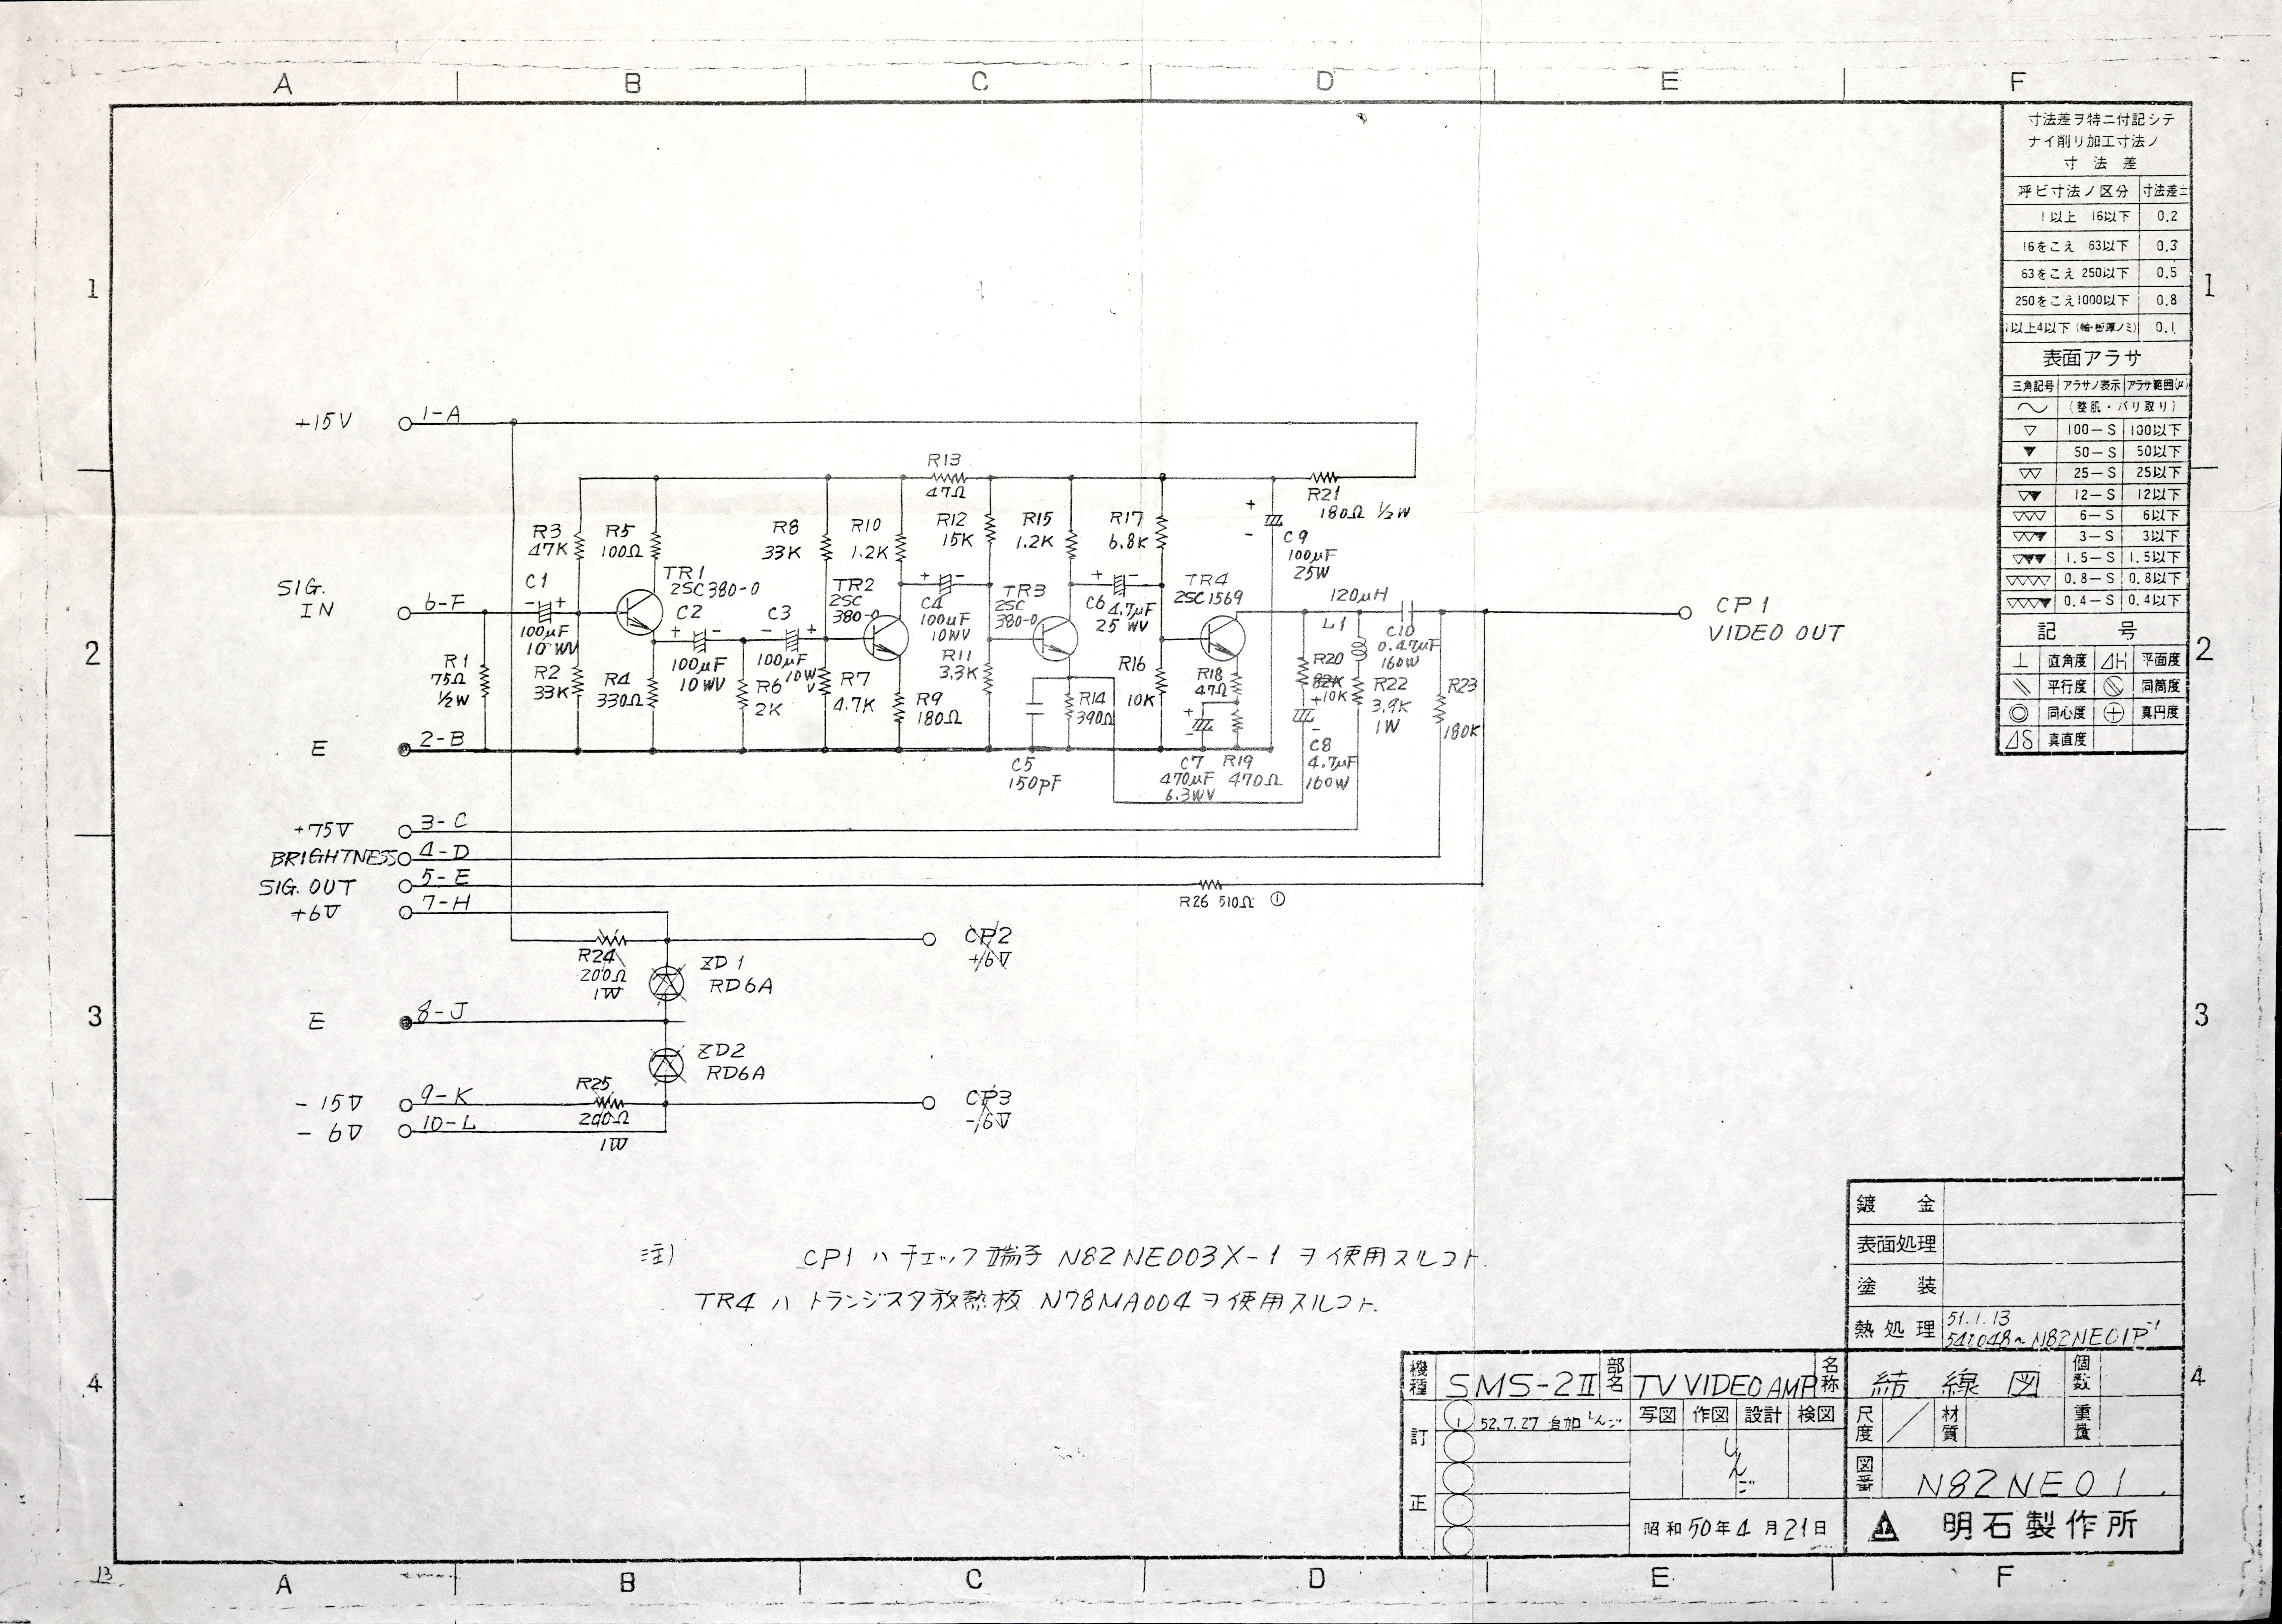 A B C D E F
1
2
3
4
寸法差ヲ特ニ付記シテ
ナイ削リ加工寸法ノ
寸法差
呼ビ寸法ノ区分 寸法差±
1以上 16以下 0.2
16をこえ 63以下 0.3
63をこえ 250以下 0.5
250をこえ1000以下 0.8
以上4以下(軸・板厚ノミ) 0.1
表面アラサ
三角記号 アラサノ表示 アラサ範囲(μ)
〜 (整肌・バリ取り)
▽ 100-S 100以下
▼ 50-S 50以下
▽▽ 25-S 25以下
▽▼ 12-S 12以下
▽▽▽ 6-S 6以下
▽▽▼ 3-S 3以下
▽▼▼ 1.5-S 1.5以下
▽▽▽▽ 0.8-S 0.8以下
▽▽▽▼ 0.4-S 0.4以下
記号
直角度 平面度
平行度 同筒度
同心度 真円度
真直度
1
2
3
4
+15V 1-A
SIG.
IN 6-F
E 2-B
+75V 3-C
BRIGHTNESS 4-D
SIG. OUT 5-E
+6V 7-H
E 8-J
-15V 9-K
-6V 10-L
R1
75Ω
½W
C1
- +
100μF
10WV
R3
47K
R2
33K
R5
100Ω
TR1
2SC380-0
R4
330Ω
C2
+ -
100μF
10WV
R6
2K
C3
- +
100μF
10WV
R8
33K
R7
4.7K
R10
1.2K
TR2
2SC
380-0
R9
180Ω
R13
47Ω
C4
+ -
100μF
10WV
R12
15K
R11
3.3K
TR3
2SC
380-0
C5
150pF
R15
1.2K
R14
390Ω
C6
+ -
4.7μF
25WV
R17
6.8K
R16
10K
TR4
2SC1569
R18
47Ω
+
-
C7
470μF
6.3WV
R19
470Ω
R21
180Ω ½W
+
-
C9
100μF
25W
R20
82K
10K
+
-
C8
4.7μF
160W
120μH
L1
R22
3.9K
1W
C10
0.47μF
160W
R23
180K
CP1
VIDEO OUT
R26 510Ω ①
R24
200Ω
1W
ZD1
RD6A
CP2
+6V
ZD2
RD6A
R25
200Ω
1W
CP3
-6V
注) CP1ハチェック端子 N82NE003X-1 ヲ使用スルコト.
TR4ハトランジスタ放熱板 N78MA004ヲ使用スルコト.
鍍金
表面処理
塗装
熱処理 51.1.13
541048~N82NE01P-1
機種 SMS-2Ⅱ 部名 TV VIDEO AMP 名称 結線図 個数
訂正 1 52.7.27 追加 しんご
写図 作図 設計 検図
しんご
尺度 材質 重量
図番 N82NE01
昭和50年4月21日
明石製作所
13
A B C D E F